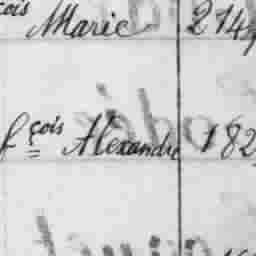 çois Marie 214
fçois Alexandre 182